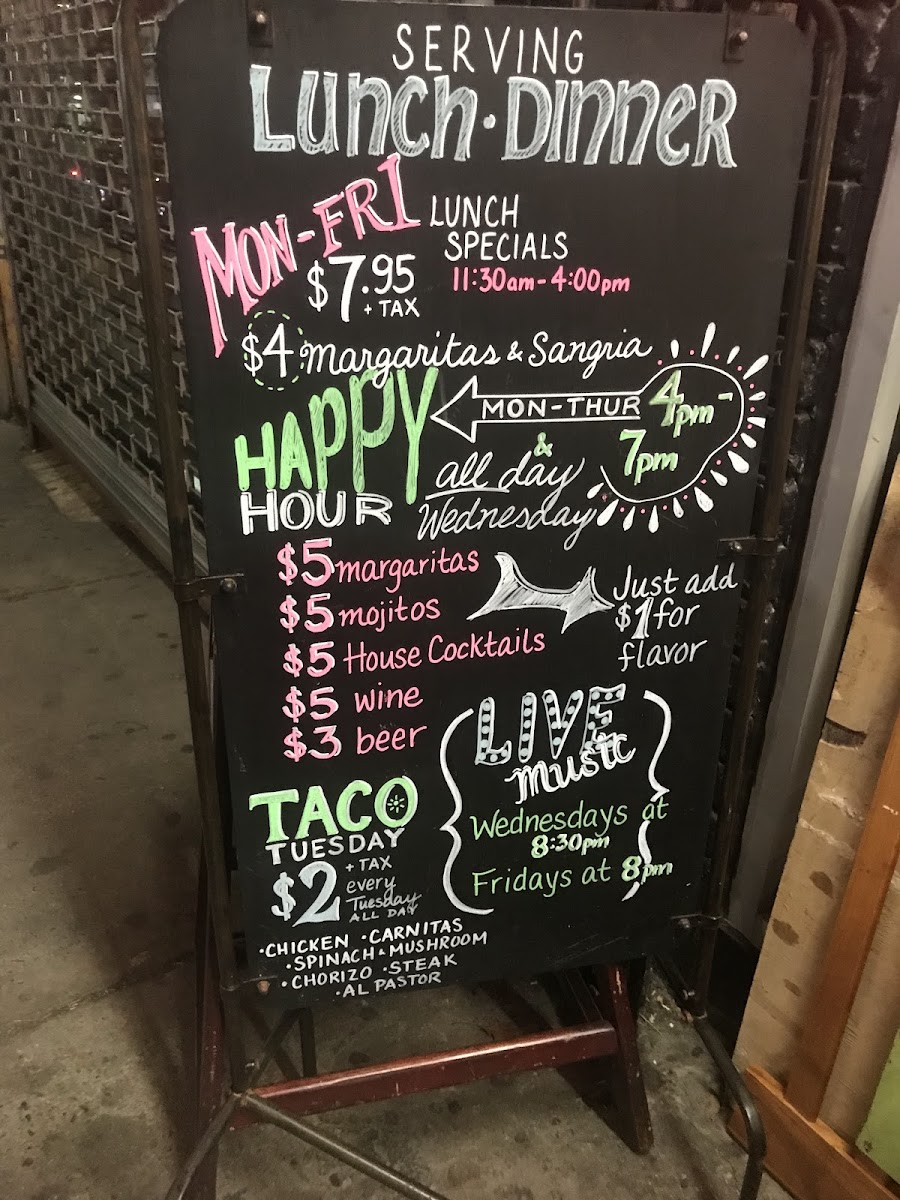 SERVING
Lunch · Dinner
MON-FRI LUNCH
SPECIALS
$7.95
+ TAX
11:30am - 4:00pm
$4 margaritas & Sangria
HAPPY
HOUR
MON-THUR 4pm-
7pm
&
all day
Wednesday
$5 margaritas
$5 mojitos
$5 House Cocktails
$5 wine
$3 beer
Just add
$1 for
flavor
LIVE
music
Wednesdays at
8:30pm
Fridays at 8pm
TACO
TUESDAY
+ TAX
$2 every
Tuesday
ALL DAY
· CHICKEN · CARNITAS
· SPINACH & MUSHROOM
· CHORIZO · STEAK
· AL PASTOR